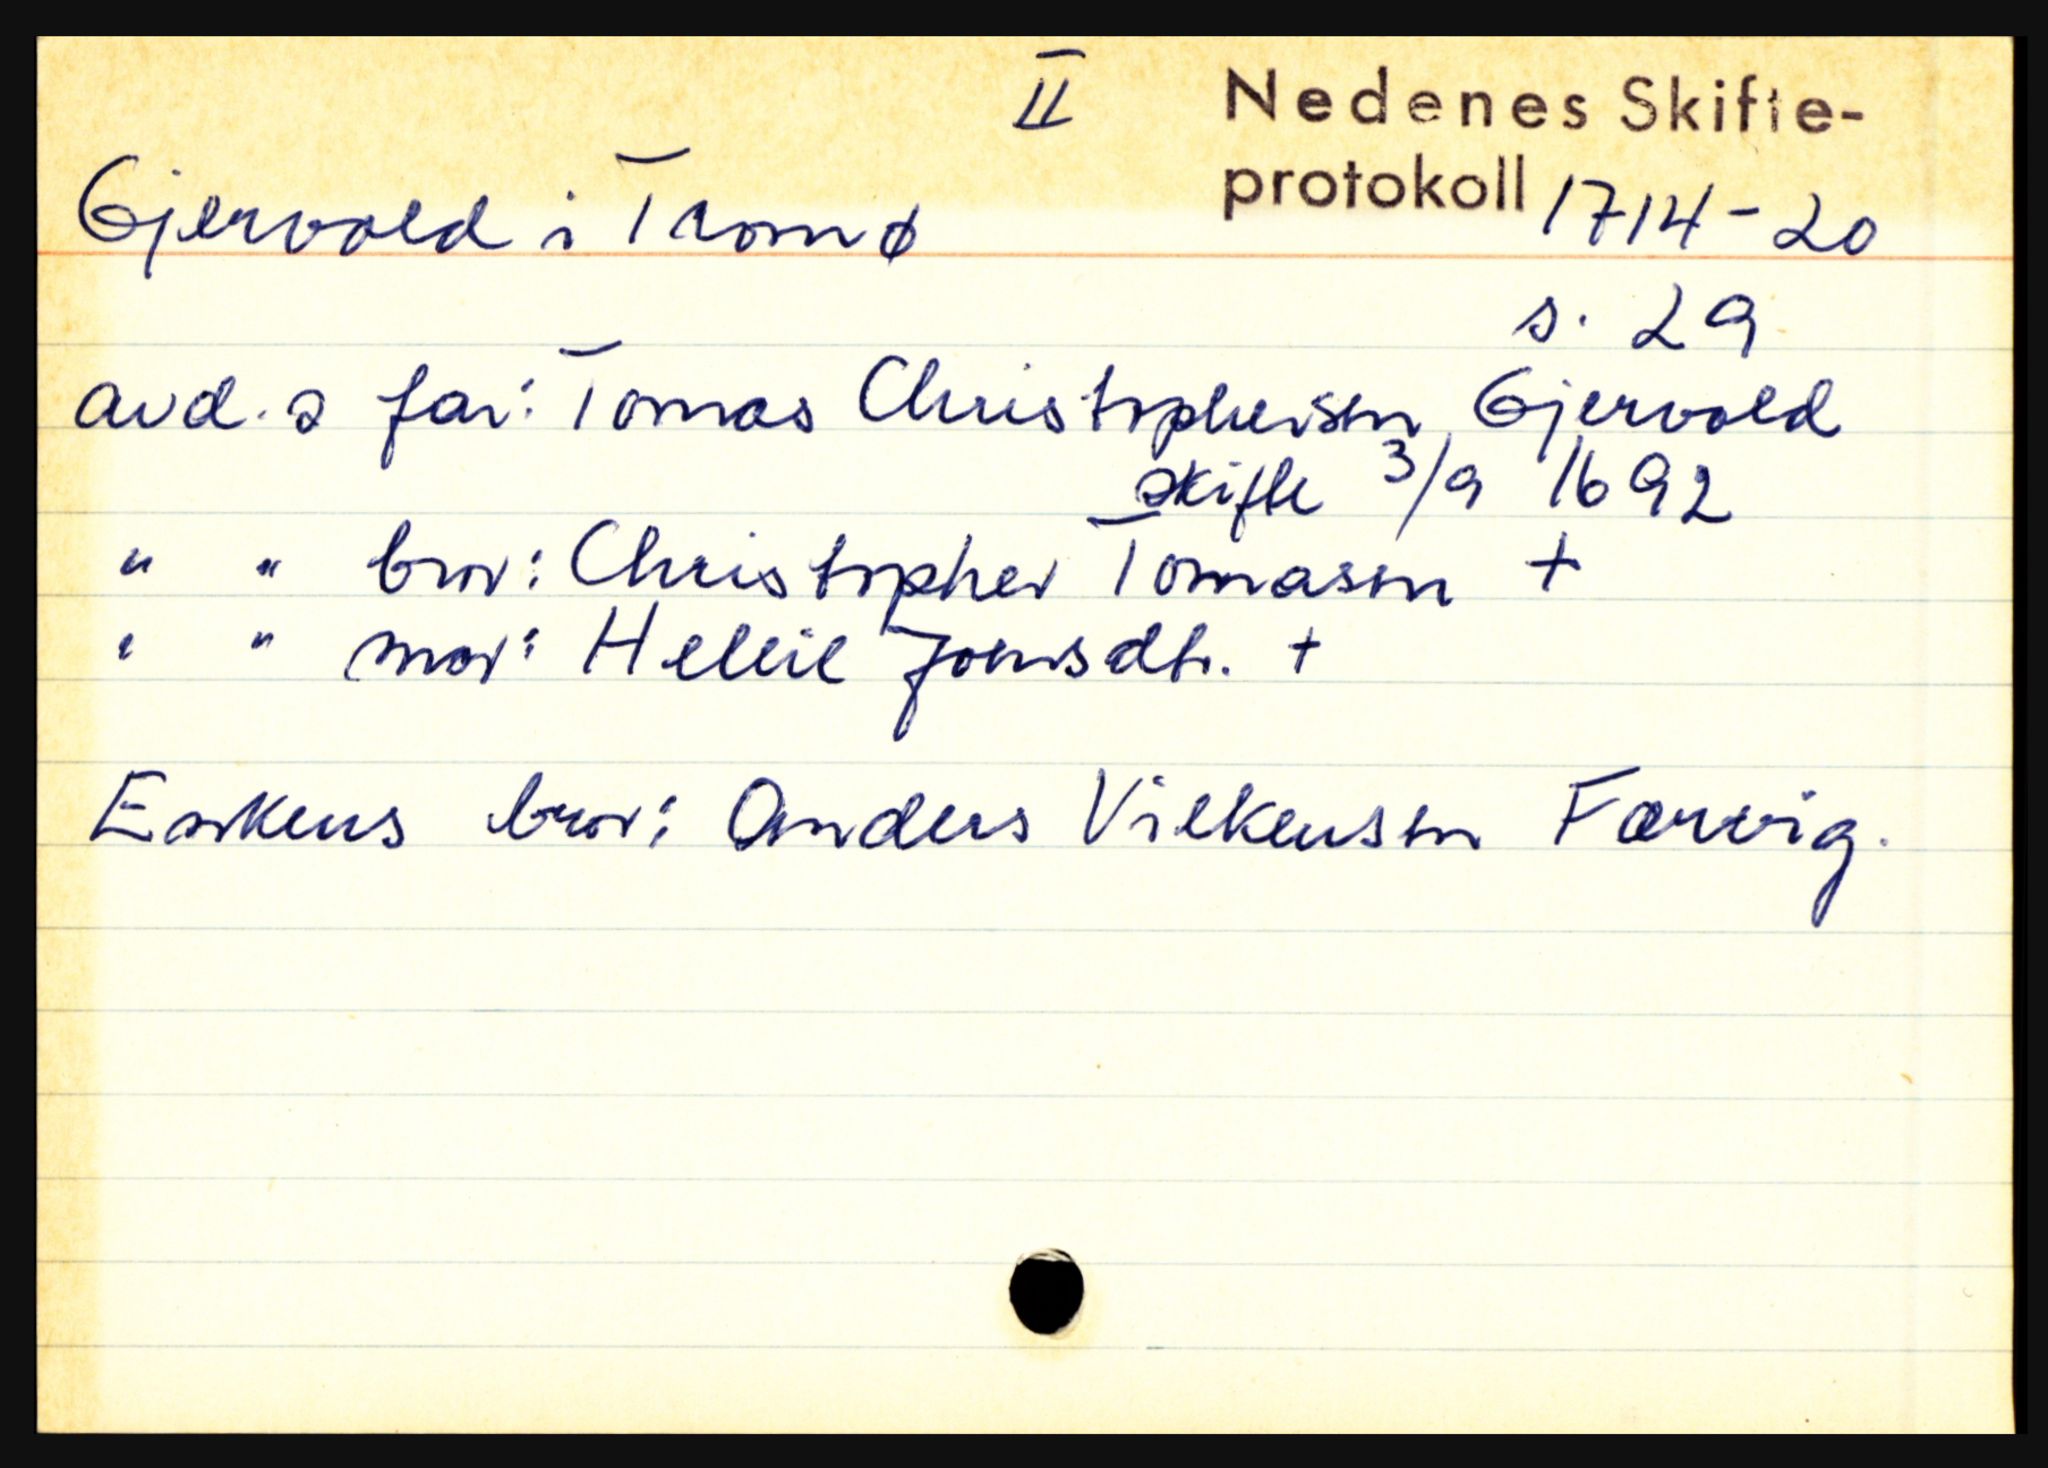 II Nedenes Skifte-
protokoll 1714-20
Gjervold i Tromø
s. 29
avd. s far: Tomas Christophersen Gjervold
skifte 3/9 1692
" " bror: Christopher Tomasen +
" " mor: Helleil Joensdtr. +
Enkens bror: Anders Vilkensen Færvig.